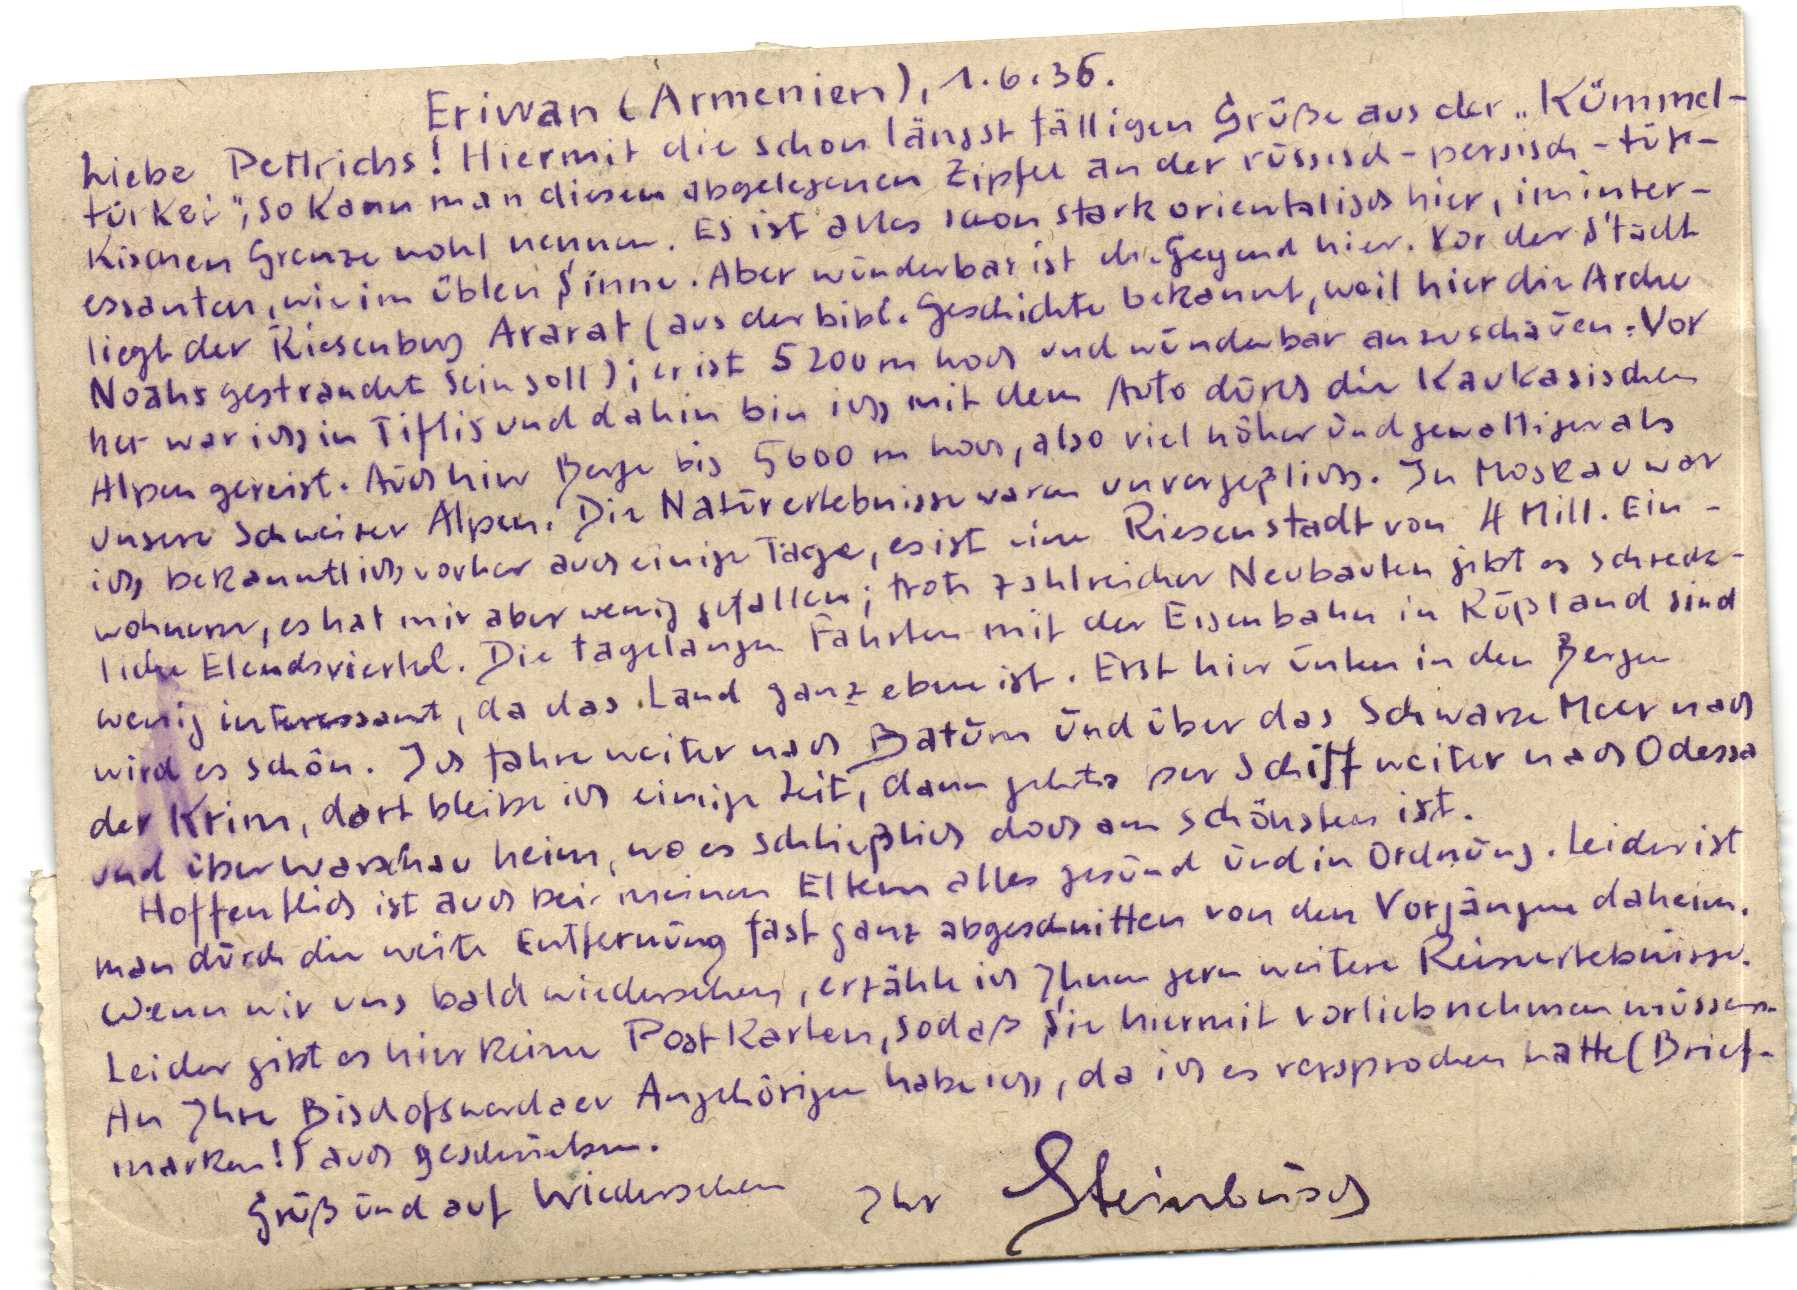 Eriwan (Armenien), 1.6.36.
Liebe Pettrichs! Hiermit die schon längst fälligen Grüße aus der „Kümmel-
türkei“, so kann man diesen abgelegenen Zipfel an der russisch-persisch-tür-
kischen Grenze wohl nennen. Es ist alles schon stark orientalisch hier, im inter-
essanten, wie im üblen Sinne. Aber wunderbar ist die Gegend hier. Vor der Stadt
liegt der Riesenberg Ararat (aus der bibl. Geschichte bekannt, weil hier die Arche
Noahs gestrandet sein soll); er ist 5200 m hoch und wunderbar anzuschauen. Vor
her war ich in Tiflis und dahin bin ich mit dem Auto durch die Kaukasischen
Alpen gereist. Auch hier Berge bis 5600 m hoch, also viel höher und gewaltiger als
unsere Schweizer Alpen. Die Naturerlebnisse waren unvergeßlich. In Moskau war
ich bekanntlich vorher auch einige Tage, es ist eine Riesenstadt von 4 Mill. Ein-
wohnern, es hat mir aber wenig gefallen; trotz zahlreicher Neubauten gibt es schreck-
liche Elendsviertel. Die tagelangen Fahrten mit der Eisenbahn in Rußland sind
wenig interessant, da das Land ganz eben ist. Erst hier unten in den Bergen
wird es schön. Ich fahre weiter nach Batum und über das Schwarze Meer nach
der Krim, dort bleibe ich einige Zeit, dann gehts per Schiff weiter nach Odessa
und über Warschau heim, wo es schließlich doch am schönsten ist.
Hoffentlich ist auch bei meinen Eltern alles gesund und in Ordnung. Leider ist
man durch die weite Entfernung fast ganz abgeschnitten von den Vorgängen daheim.
Wenn wir uns bald wiedersehen, erzähle ich Ihnen gern weitere Reiseerlebnisse.
Leider gibt es hier keine Postkarten, sodaß Sie hiermit vorliebnehmen müssen.
An Ihre Bischofswerdaer Angehörigen habe ich, da ich es versprochen hatte (Brief-
marken!) auch geschrieben.
Gruß und auf Wiedersehen Ihr Steinbusch